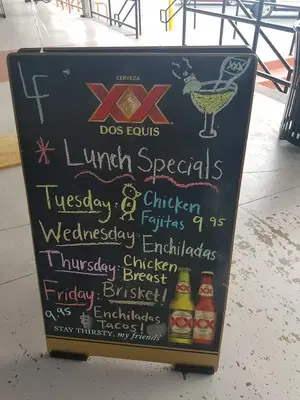 LF
CERVEZA
XX
DOS EQUIS
XXX
* Lunch Specials
Tuesday: Chicken
Fajitas 9.95
Wednesday: Enchiladas
Thursday: Chicken
Breast
Friday: Brisket!
9.95 & Enchiladas
Tacos!
XX XX
STAY THIRSTY, my friends